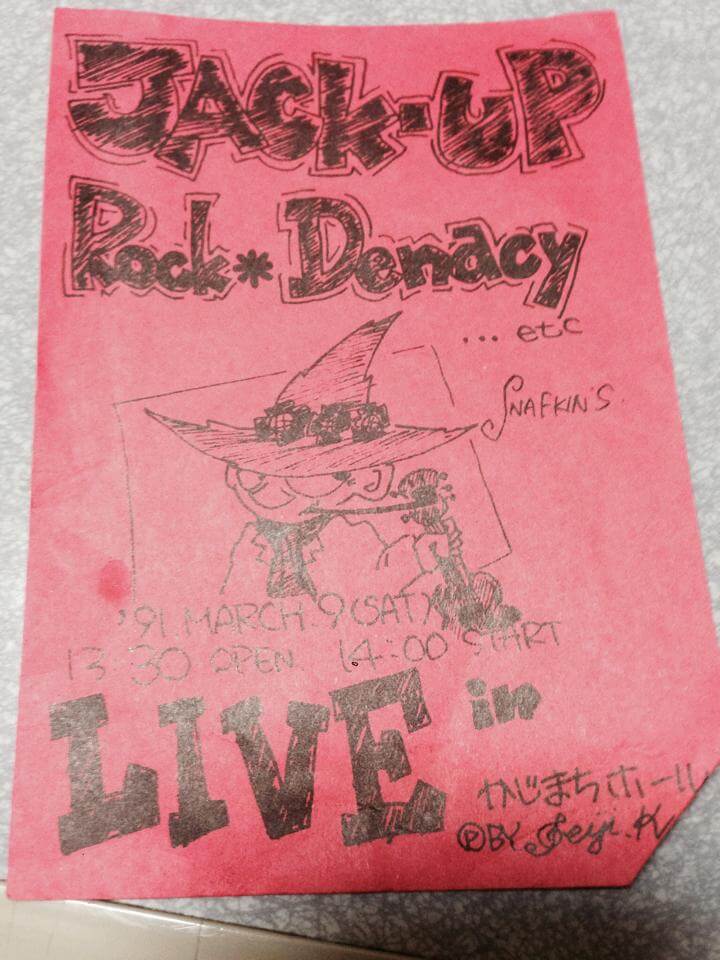 JACK-UP
Rock* Denacy
... etc
SNAFKIN'S
'91. MARCH. 9 (SAT)
13:30 OPEN. 14:00 START
LIVE in
かじまちホール
Ⓟ BY Seiji.K